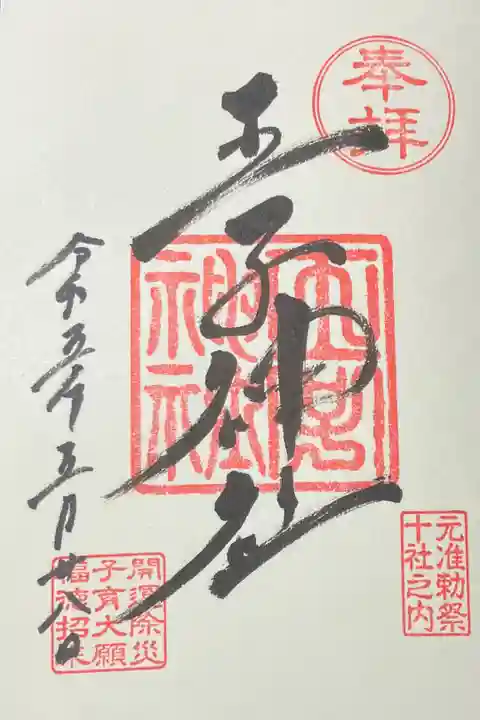 奉拝
王子神社
王子
神社
元准勅祭
十社之内
開運除災
子育大願
福徳招来
令和五年五月廿八日